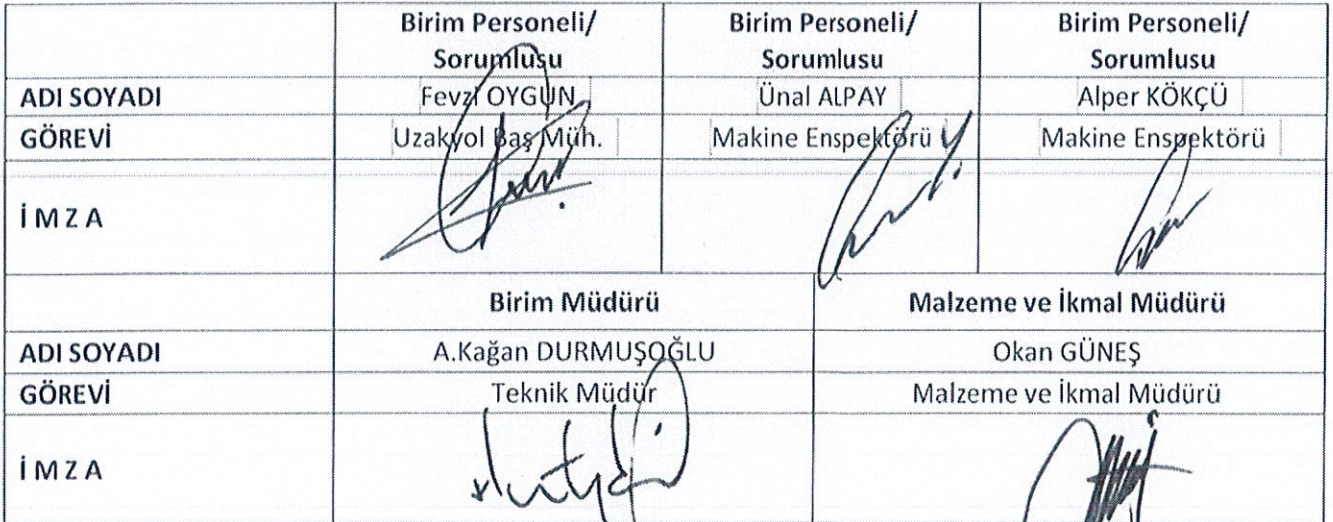 Birim Personeli/ Birim Personeli/ Birim Personeli/
Sorumlusu Sorumlusu Sorumlusu
ADI SOYADI Fevzi OYGUN Ünal ALPAY Alper KÖKÇÜ
GÖREVİ Uzakyol Baş Müh. Makine Enspektörü Makine Enspektörü
İ M Z A
Birim Müdürü Malzeme ve İkmal Müdürü
ADI SOYADI A.Kağan DURMUŞOĞLU Okan GÜNEŞ
GÖREVİ Teknik Müdür Malzeme ve İkmal Müdürü
İ M Z A